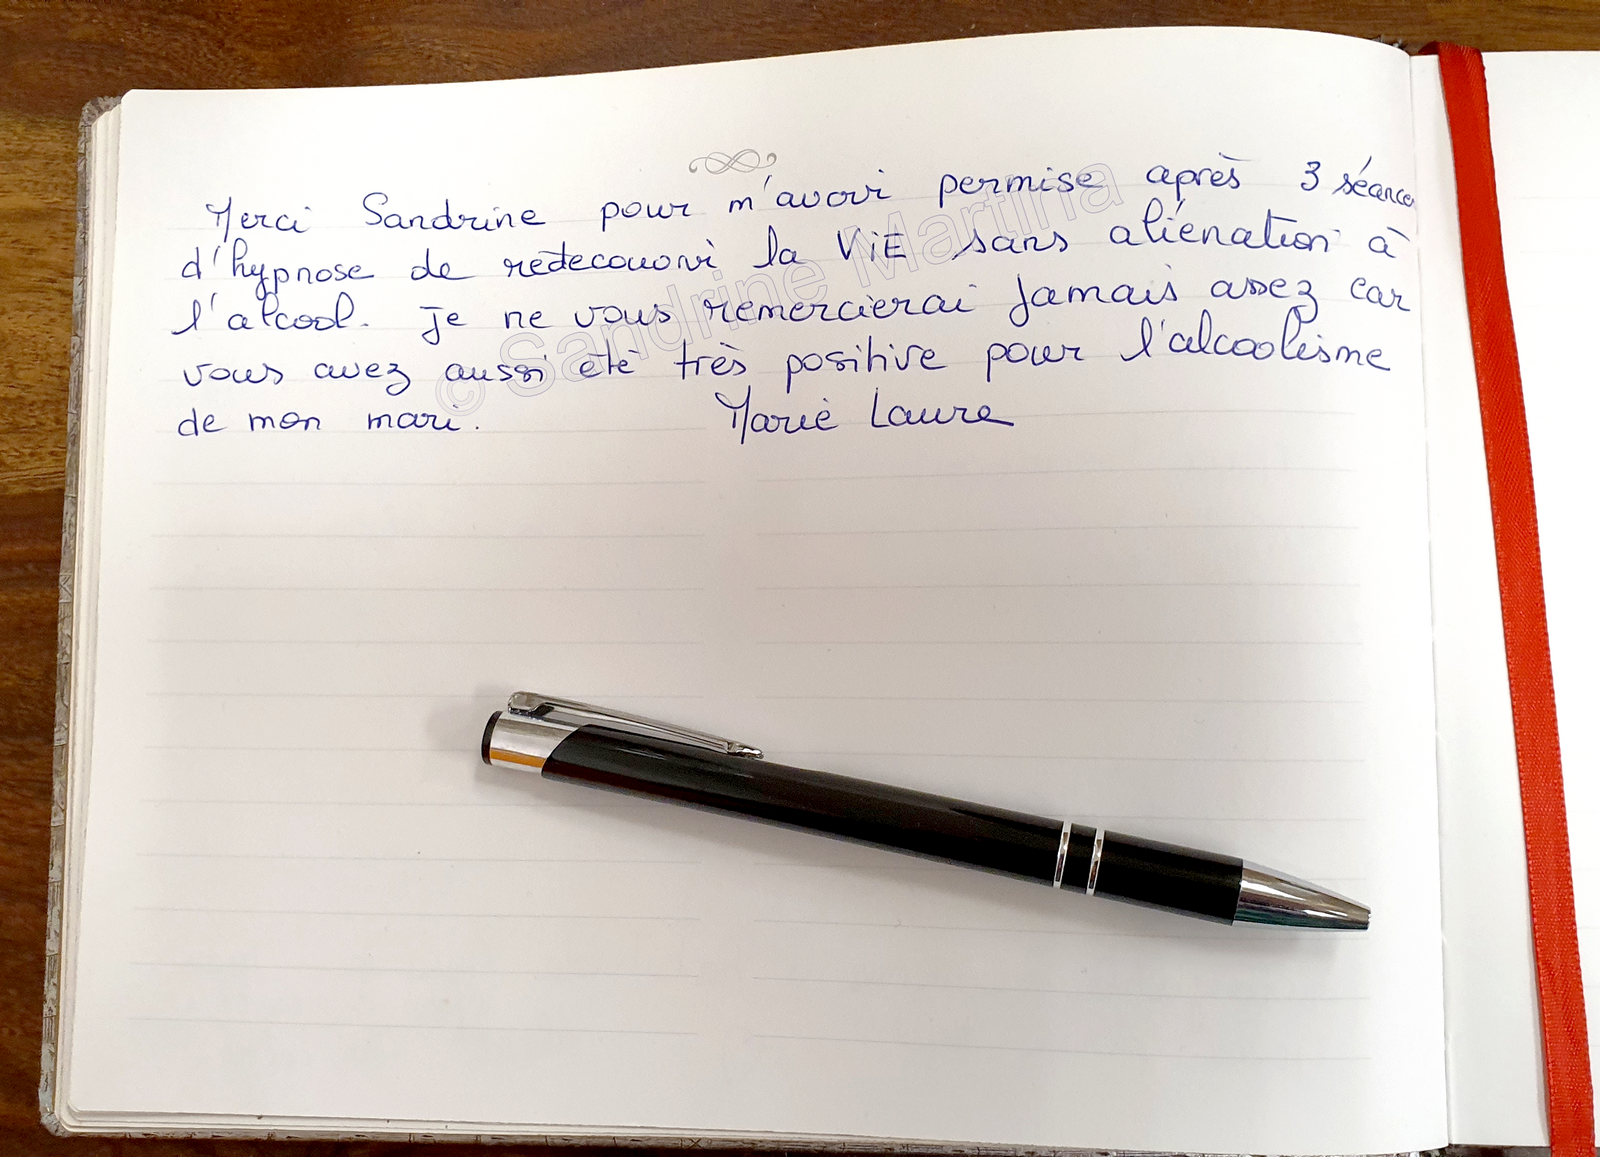 Merci Sandrine pour m'avoir permise après 3 séances
d'hypnose de redecouvrir la ViE sans aliénation à
l'alcool. Je ne vous remercierai jamais assez car
vous avez aussi été très positive pour l'alcoolisme
de mon mari. Marie Laure
© Sandrine Martina